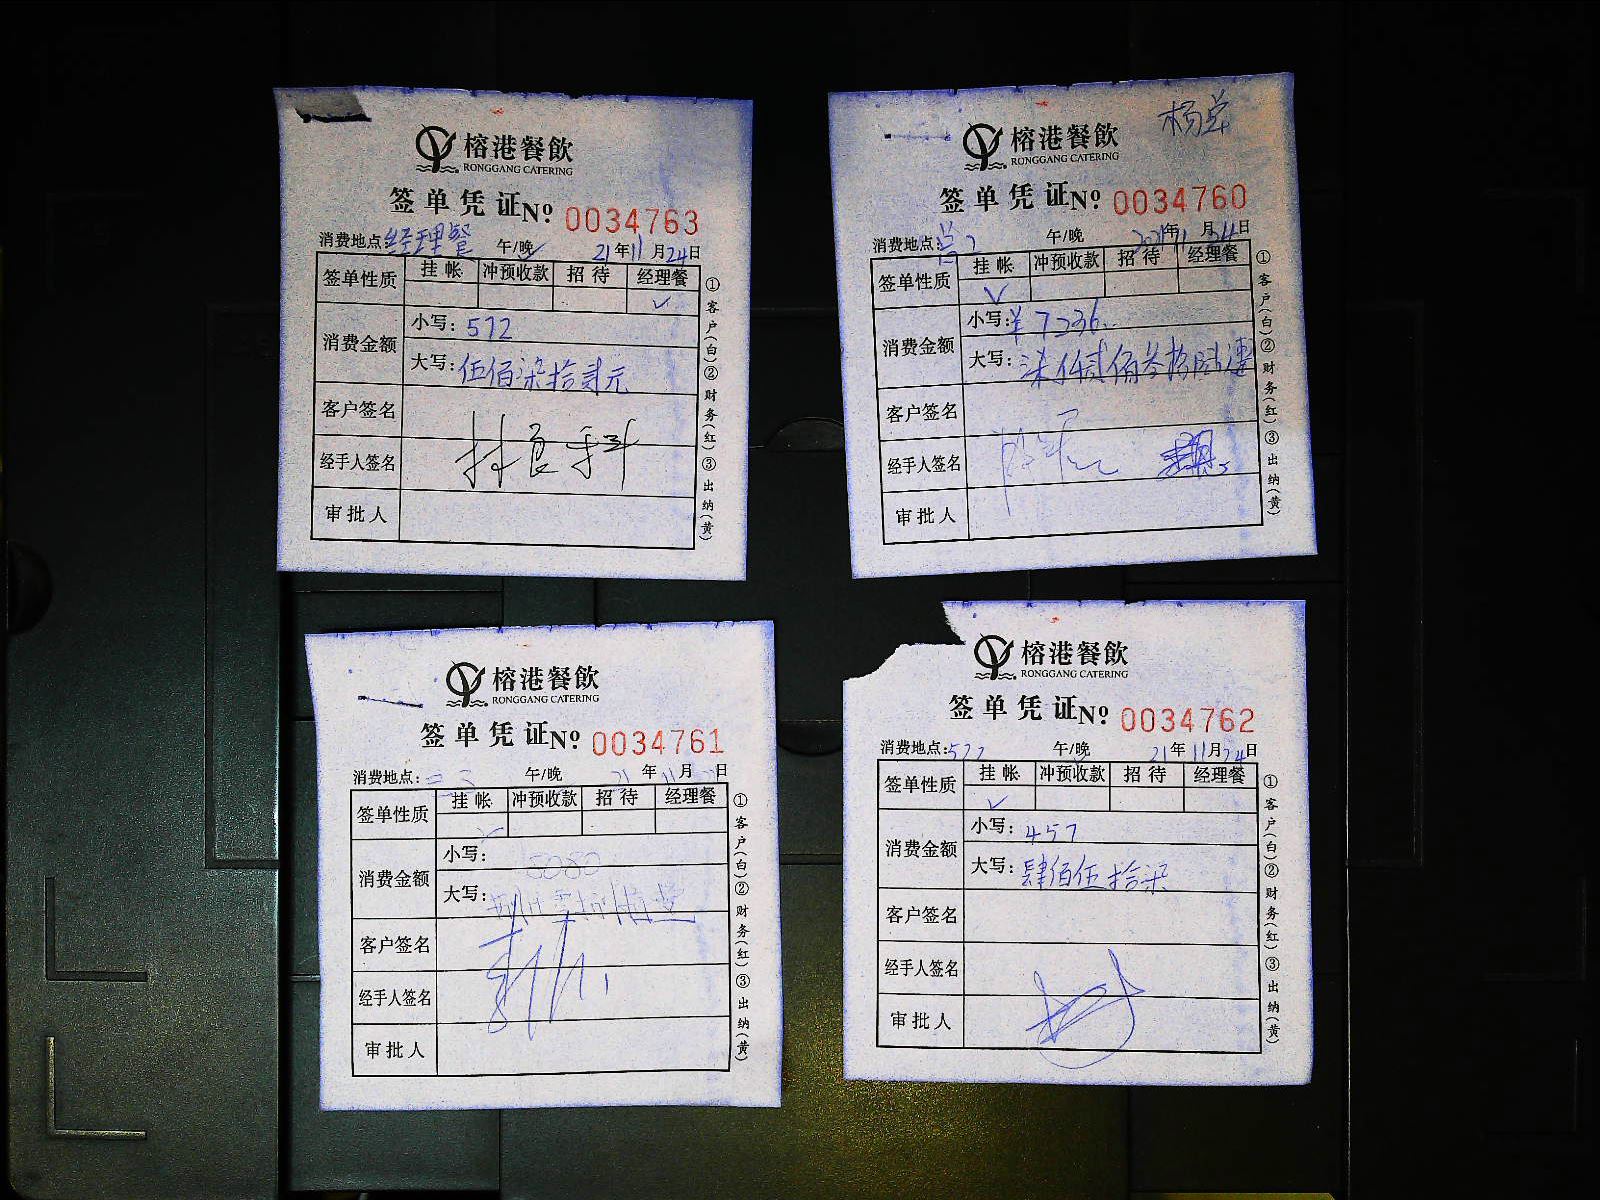 榕港餐飲
RONGGANG CATERING
签单凭证 № 0034763
消费地点:经理餐 午/晚 21年11月24日
签单性质 挂帐 冲预收款 招待 经理餐
✓
消费金额 小写:572
大写:伍佰柒拾贰元
客户签名
经手人签名
审批人
①客户(白)②财务(红)③出纳(黄)
榕港餐飲
RONGGANG CATERING
签单凭证 № 0034760
消费地点: 午/晚 年 月24日
签单性质 挂帐 冲预收款 招待 经理餐
✓
消费金额 小写:¥7236
大写:柒仟贰佰叁拾陆
客户签名
经手人签名
审批人
①客户(白)②财务(红)③出纳(黄)
榕港餐飲
RONGGANG CATERING
签单凭证 № 0034761
消费地点: 午/晚 21年11月 日
签单性质 挂帐 冲预收款 招待 经理餐
✓
消费金额 小写:5080
大写:
客户签名
经手人签名
审批人
①客户(白)②财务(红)③出纳(黄)
榕港餐飲
RONGGANG CATERING
签单凭证 № 0034762
消费地点: 午/晚 21年11月24日
签单性质 挂帐 冲预收款 招待 经理餐
✓
消费金额 小写:457
大写:肆佰伍拾柒
客户签名
经手人签名
审批人
①客户(白)②财务(红)③出纳(黄)